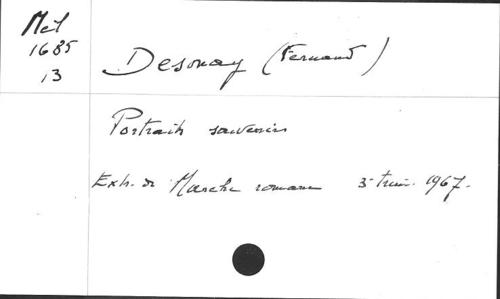 Mel
1685
13
Desonay (Fernand)
Portraits souvenirs
Extr. de Marche romane 3e trim. 1967.